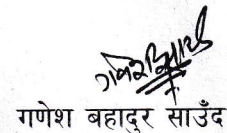 गणेश बहादुर साउँद